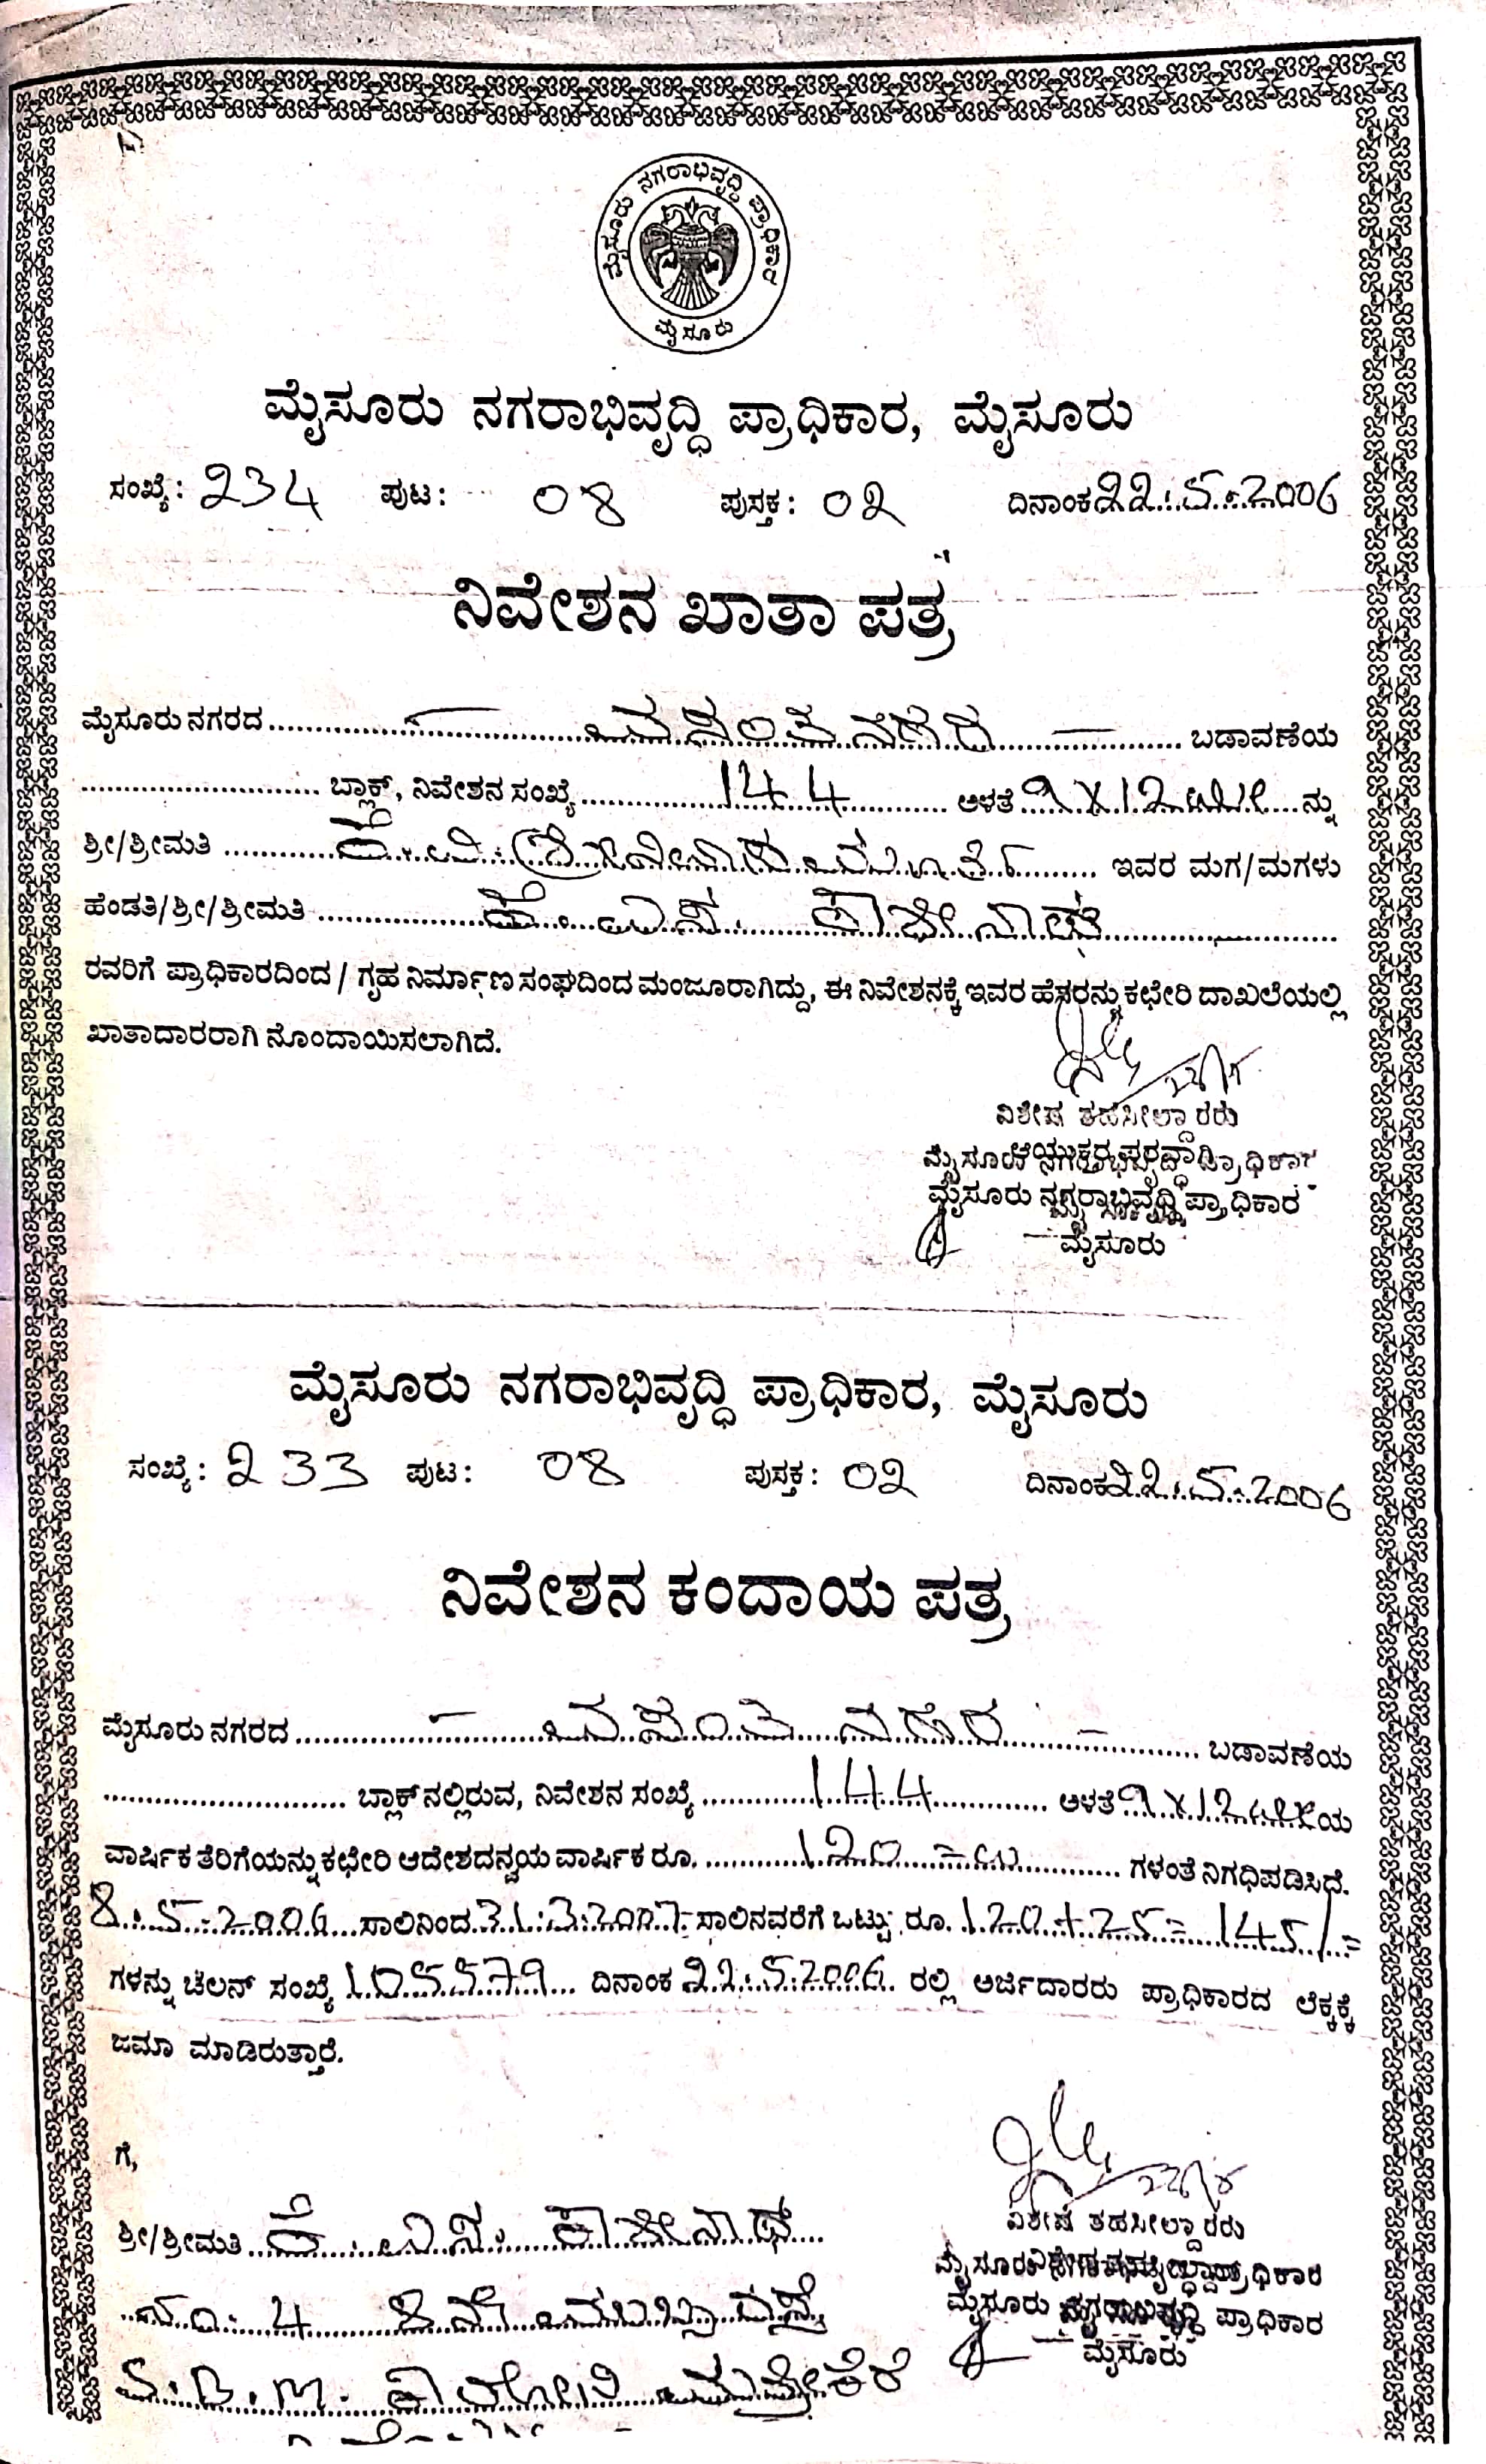 ಮೈಸೂರು ನಗರಾಭಿವೃದ್ಧಿ ಪ್ರಾಧಿಕಾರ
ಮೈಸೂರು
ಮೈಸೂರು ನಗರಾಭಿವೃದ್ಧಿ ಪ್ರಾಧಿಕಾರ, ಮೈಸೂರು
ಸಂಖ್ಯೆ: 234 ಪುಟ: 08 ಪುಸ್ತಕ: 02 ದಿನಾಂಕ 22.5.2006
ನಿವೇಶನ ಖಾತಾ ಪತ್ರ
ಮೈಸೂರು ನಗರದ ವಸಂತನಗರ ಬಡಾವಣೆಯ
ಬ್ಲಾಕ್, ನಿವೇಶನ ಸಂಖ್ಯೆ 144 ಅಳತೆ 9 X 12 ನ್ನು
ಶ್ರೀ/ಶ್ರೀಮತಿ ಕೆ. ಇವರ ಮಗ/ಮಗಳು
ಹೆಂಡತಿ/ಶ್ರೀ/ಶ್ರೀಮತಿ ಕೆ. ಎಸ್. ಕಾಶೀನಾಥ್
ರವರಿಗೆ ಪ್ರಾಧಿಕಾರದಿಂದ / ಗೃಹ ನಿರ್ಮಾಣ ಸಂಘದಿಂದ ಮಂಜೂರಾಗಿದ್ದು, ಈ ನಿವೇಶನಕ್ಕೆ ಇವರ ಹೆಸರನ್ನು ಕಛೇರಿ ದಾಖಲೆಯಲ್ಲಿ
ಖಾತಾದಾರರಾಗಿ ನೊಂದಾಯಿಸಲಾಗಿದೆ.
ವಿಶೇಷ ತಹಸೀಲ್ದಾರರು
ಮೈಸೂರು ನಗರಾಭಿವೃದ್ಧಿ ಪ್ರಾಧಿಕಾರ
ಮೈಸೂರು
ಮೈಸೂರು ನಗರಾಭಿವೃದ್ಧಿ ಪ್ರಾಧಿಕಾರ, ಮೈಸೂರು
ಸಂಖ್ಯೆ: 233 ಪುಟ: 08 ಪುಸ್ತಕ: 02 ದಿನಾಂಕ 22.5.2006
ನಿವೇಶನ ಕಂದಾಯ ಪತ್ರ
ಮೈಸೂರು ನಗರದ ವಸಂತ ನಗರ ಬಡಾವಣೆಯ
ಬ್ಲಾಕ್‌ನಲ್ಲಿರುವ, ನಿವೇಶನ ಸಂಖ್ಯೆ 144 ಅಳತೆ 9 X 12 ಯ
ವಾರ್ಷಿಕ ತೆರಿಗೆಯನ್ನು ಕಛೇರಿ ಆದೇಶದನ್ವಯ ವಾರ್ಷಿಕ ರೂ. 120=00 ಗಳಂತೆ ನಿಗಧಿಪಡಿಸಿದೆ.
8.5.2006 ಸಾಲಿನಿಂದ 31.3.2007 ಸಾಲಿನವರೆಗೆ ಒಟ್ಟು ರೂ. 120+25=145/=
ಗಳನ್ನು ಚಲನ್ ಸಂಖ್ಯೆ 105579 ದಿನಾಂಕ 22.5.2006 ರಲ್ಲಿ ಅರ್ಜಿದಾರರು ಪ್ರಾಧಿಕಾರದ ಲೆಕ್ಕಕ್ಕೆ
ಜಮಾ ಮಾಡಿರುತ್ತಾರೆ.
ಗೆ,
ಶ್ರೀ/ಶ್ರೀಮತಿ ಕೆ. ಎಸ್. ಕಾಶೀನಾಥ್
ನಂ. 4 8ನೇ ಮುಖ್ಯ ರಸ್ತೆ
S.B.M. ಕಾಲೋನಿ ಮತ್ತೀಕೆರೆ
ವಿಶೇಷ ತಹಸೀಲ್ದಾರರು
ಮೈಸೂರು ನಗರಾಭಿವೃದ್ಧಿ ಪ್ರಾಧಿಕಾರ
ಮೈಸೂರು